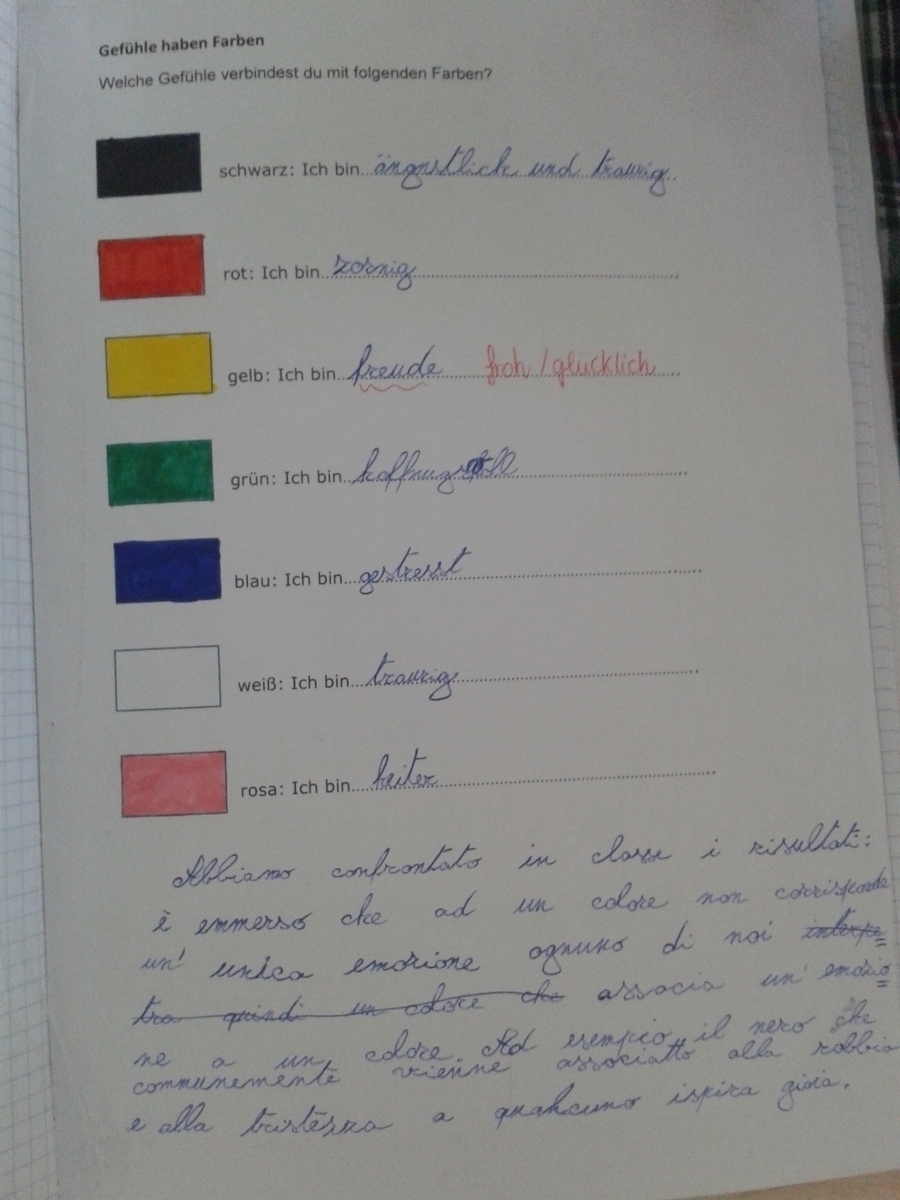 Gefühle haben Farben
Welche Gefühle verbindest du mit folgenden Farben?
schwarz: Ich bin...ängstlich und traurig..
rot: Ich bin...zornig
gelb: Ich bin...freude froh / glücklich
grün: Ich bin...hoffnungsvoll
blau: Ich bin...gestresst
weiß: Ich bin...traurig
rosa: Ich bin...heiter
Abbiamo confrontato in classe i risultati:
è emmerso che ad un colore non corrisponde
un' unica emozione ognuno di noi interpre
tra quindi un colore che associa un' emozio
ne a un colore. Ad esempio il nero che
communemente vienne associatto alla rabbia
e alla tristezza a qualcuno ispira gioia.